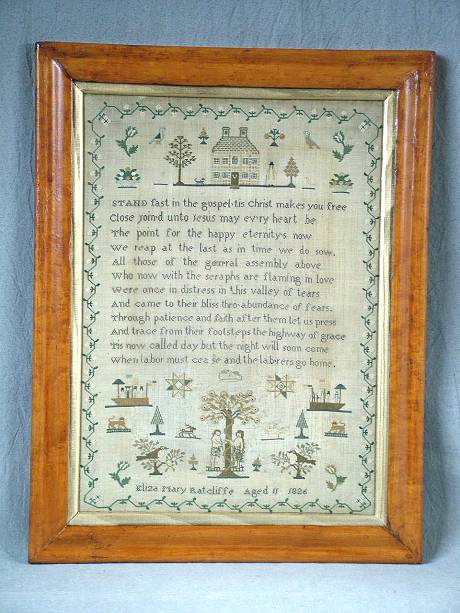 STAND fast in the gospel·tis Christ makes you free
Close join·d unto Jesus may ev'ry heart be
The point for the happy eternity·s now
We reap at the last as in time we do sow.
All those of the genrral assembly above
Who now with the seraphs are flaming in love
Were once in distress in this valley of tears
And came to their bliss thro·abundance of fears.
Through patience and faith after them let us press
And trace from their footsteps the highway of grace
Tis now called day but the night will soon come
When labor must cease and the lab·rers go home.
Eliza Mary Ratcliffe Aged 11 1826